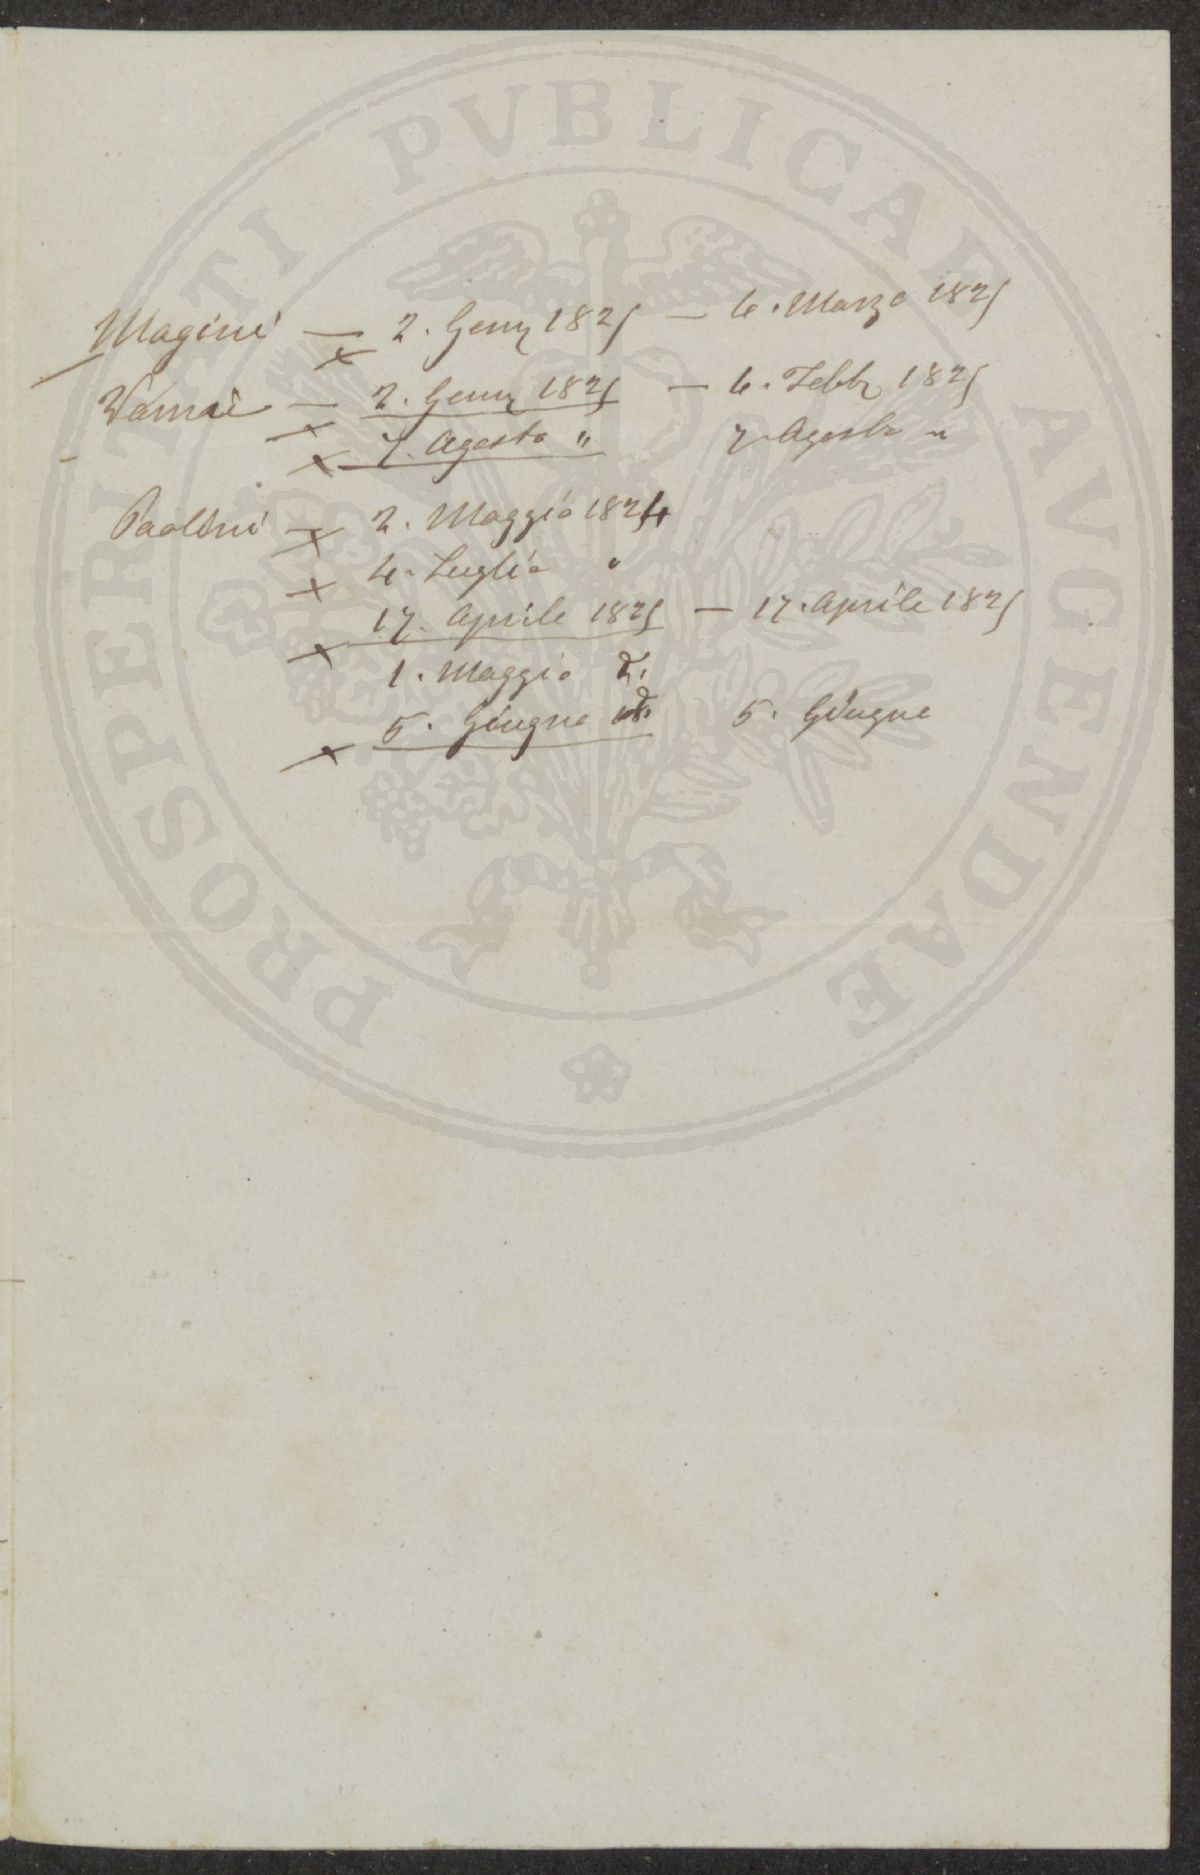 PROSPERITATI PVBLICAE AVGENDAE
Magini — 2. Genn 1825 — 6. Marzo 1825
x
— 2. Genn 1825 — 6. Febb 1825
x 7. Agosto " 7 Agosto "
Paolini — 2. Maggio 1824
x 4. Luglio "
x 17. Aprile 1825 — 17. Aprile 1825
1. Maggio d.
x 5. Giugno 5. Giugno